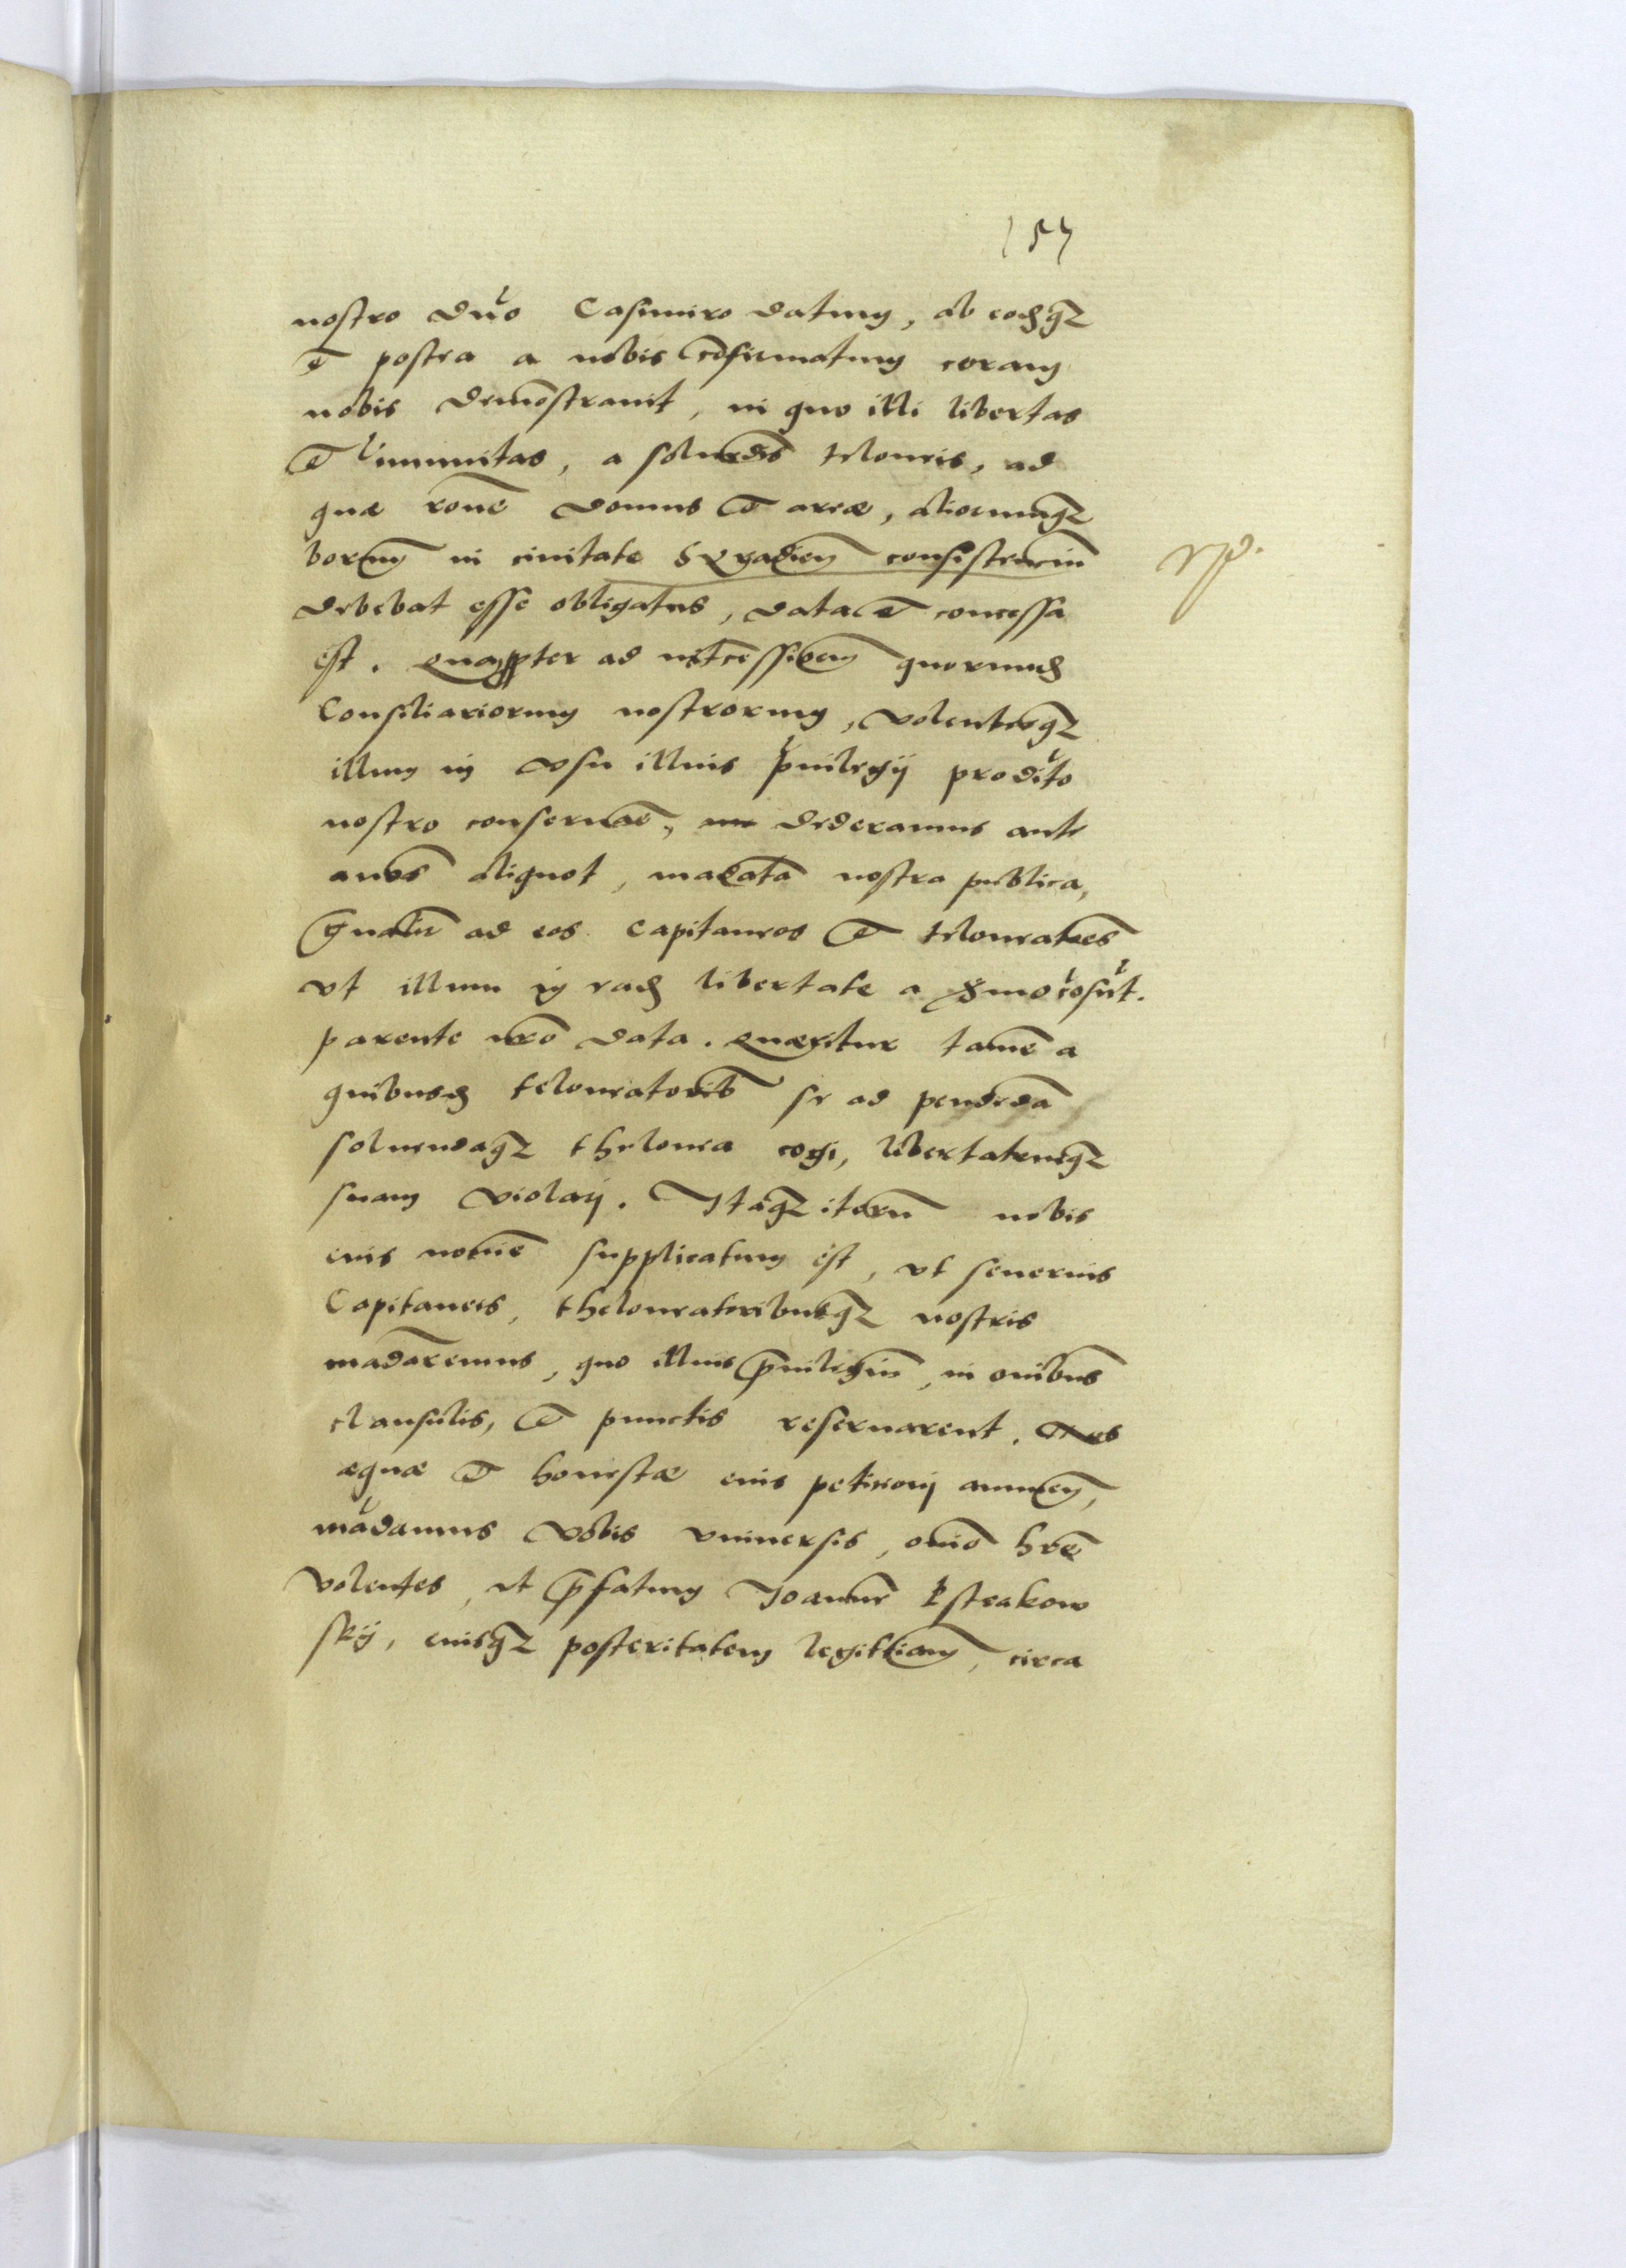 157
nostro dno Casimiro datum, ab eodemqz
et postea a nobis cōfirmatum coram
nobis demōstrauit, in quo illi libertas
et immunitas, a soluēdis teloneis, ad
quæ rōne domus et areæ, aliorumqz
bonorum in ciuitate Syradien consistentiū
debebat esse obligatus, data et concessa
est. Quāpropter ad intcessionem quorumdam
Consiliariorum nostrorum, volentesqz
illum in vsu illius priuilegij prædicto
nostro conseruare, dederamus ante
annos aliquot, mādata nostra publica,
gnaliū ad eos Capitaneos et teloneatores
vt illum in eadem libertate a
parente nro data. Quæritur tamē a
quibusdam teloneatoribus se ad pendēda
soluendaqz thelonea cogi, libertatemqz
suam violari. Itaqz iterū nobis
eius nomine supplicatum est, vt seuerius
Capitaneis, theloneatoribusqz nostris
mādaremus, quo illius priuilegiū, in omībus
clausulis, et punctis reseruarent. Nos
æquæ et honestæ eius petitioni annuen,
mādamus vobis vniuersis, omīo hrē
volentes, vt præfatum Joannem Pstrakow
skij, eiusqz posteritatem legittimam, circa